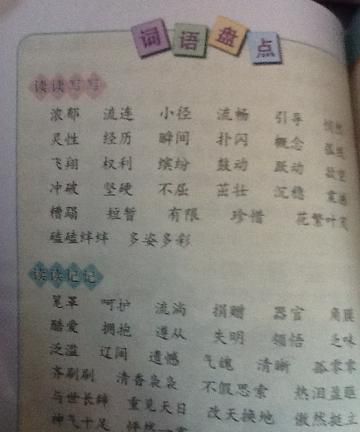 词语盘点
读读写写
浓郁 流连 小径 流畅 引导
灵性 经历 瞬间 扑闪 概念
飞翔 权利 缤纷 鼓动 跃动 欲望
冲破 坚硬 不屈 茁壮 沉稳 震撼
糟蹋 短暂 有限 珍惜 花繁叶茂
磕磕绊绊 多姿多彩
读读记记
笼罩 呵护 流淌 捐赠 器官 角膜
酷爱 拥抱 遵从 失明 领悟 乏味
泛滥 辽阔 遗憾 气魄 清晰 孤零零
齐刷刷 清香袅袅 不假思索 热泪盈眶
与世长辞 重见天日 改天换地 傲然挺立
神气十足 怦然一